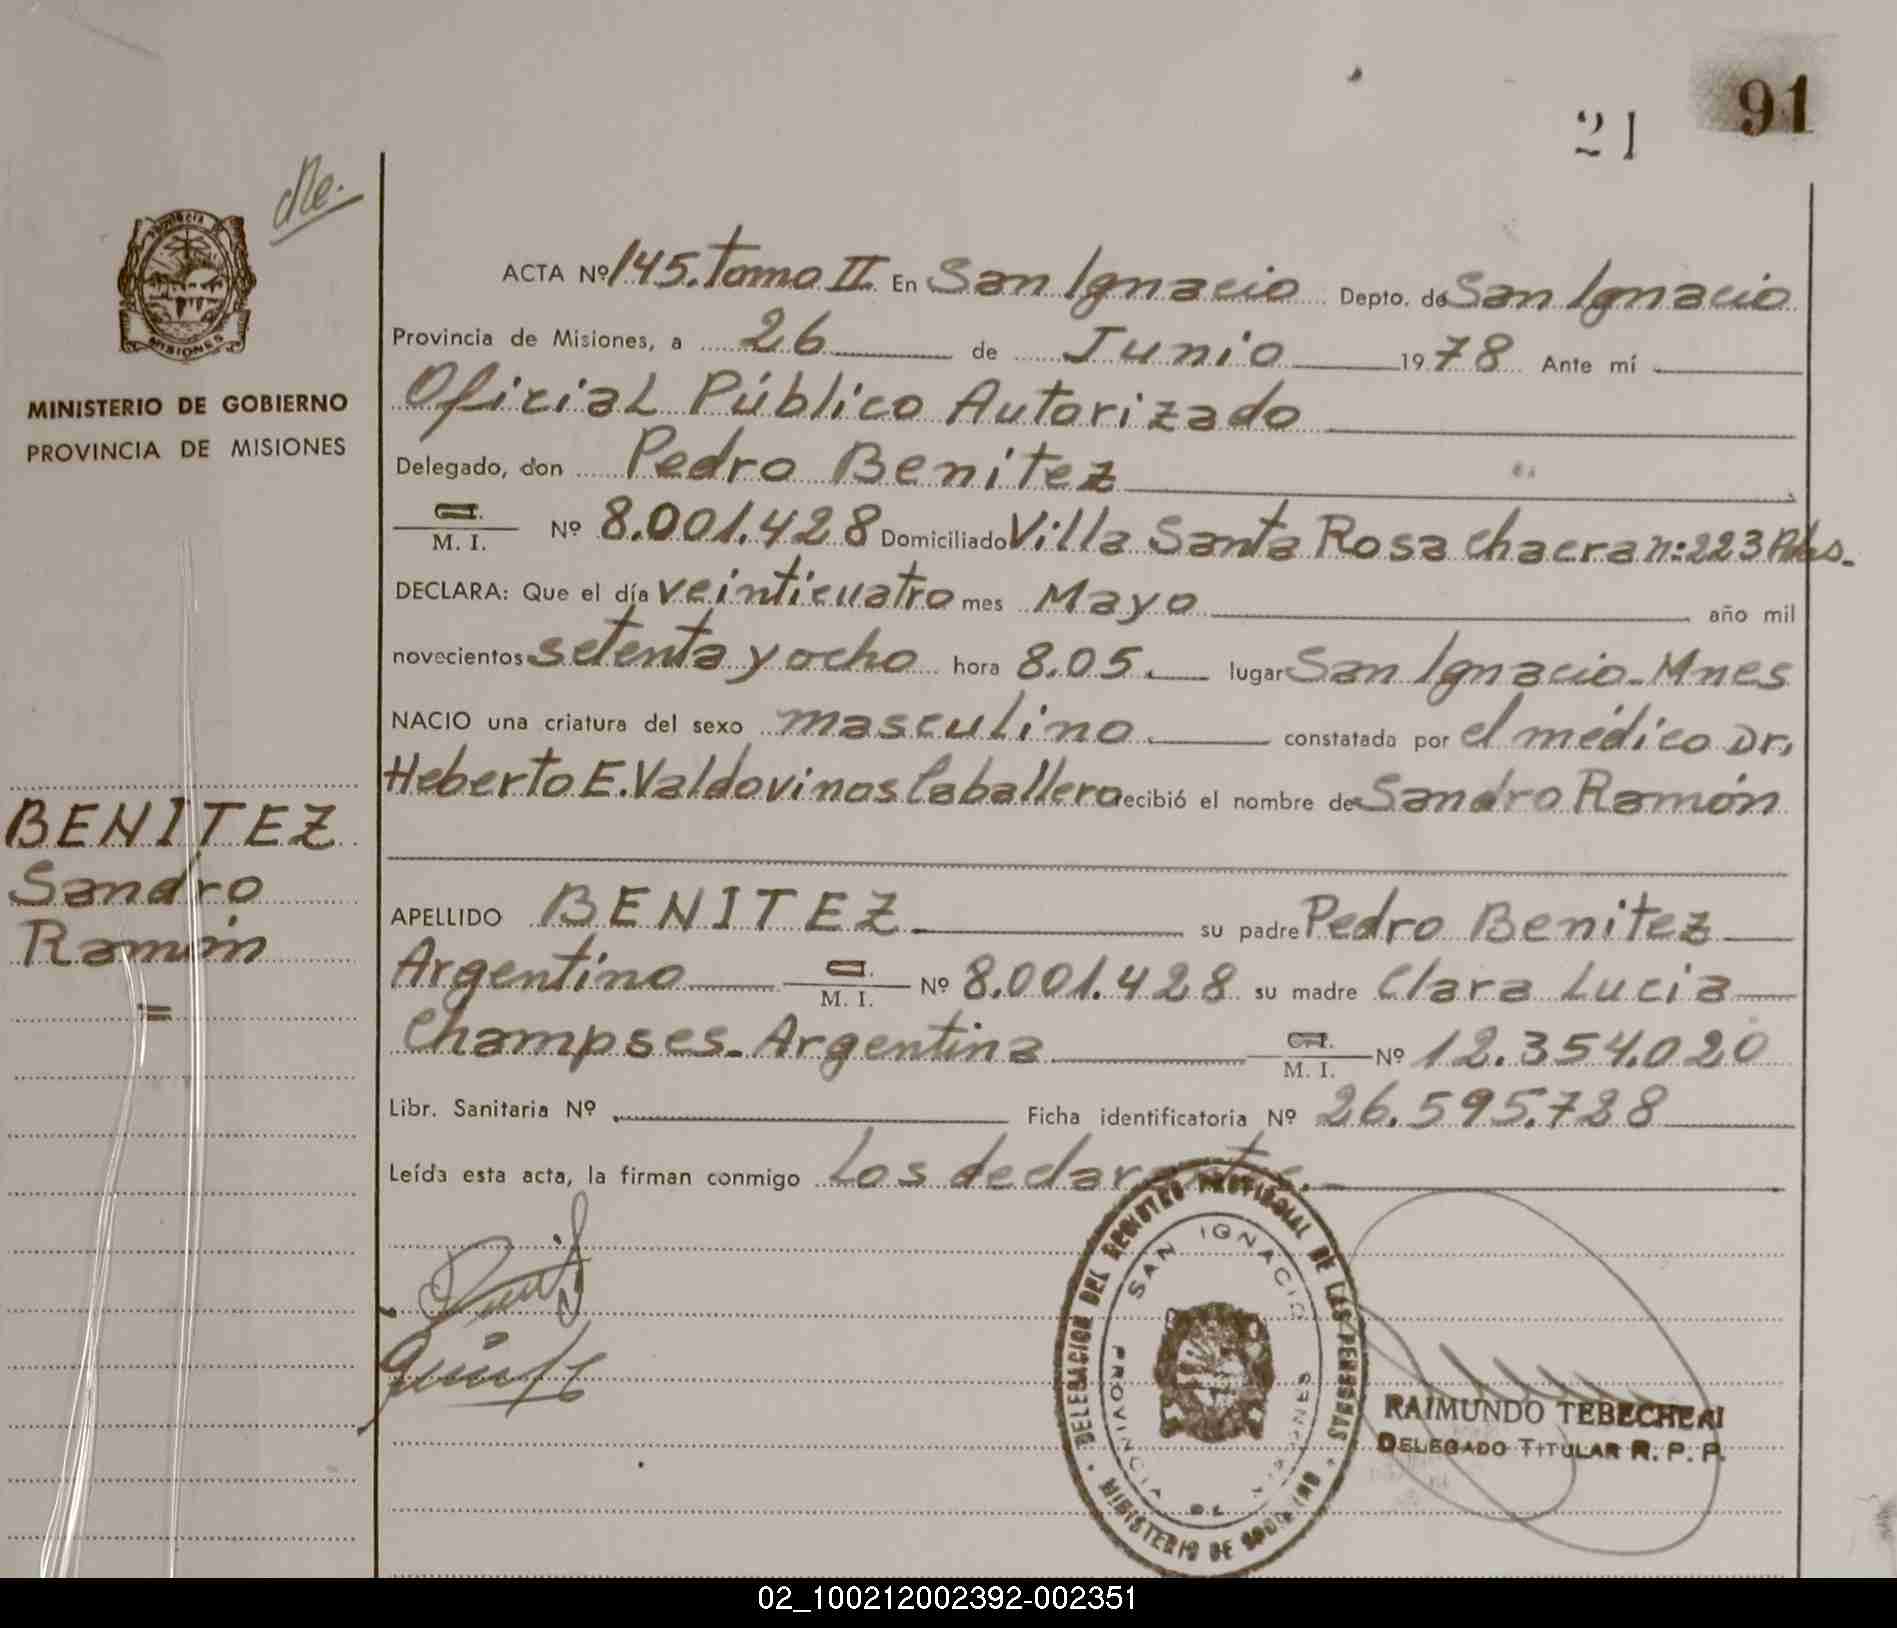 21 91
PROVINCIA
MISIONES
MINISTERIO DE GOBIERNO
PROVINCIA DE MISIONES
ACTA Nº 145. Tomo II. En San Ignacio Depto. de San Ignacio
Provincia de Misiones, a 26 de Junio 1978 Ante mí
Oficial Público Autorizado
Delegado, don Pedro Benitez
M. I. Nº 8.001.428 Domiciliado Villa Santa Rosa Chacra n: 223 Pdas.
DECLARA: Que el día veinticuatro mes Mayo año mil
novecientos setenta y ocho hora 8.05. lugar San Ignacio - Mnes
NACIO una criatura del sexo masculino constatada por el médico Dr.
Heberto E. Valdovinos Caballero recibió el nombre de Sandro Ramón
BENITEZ
Sandro
Ramón
=
APELLIDO BENITEZ su padre Pedro Benitez
Argentino M. I. Nº 8.001.428 su madre Clara Lucia
Champses - Argentina M. I. Nº 12.354.020
Libr. Sanitaria Nº Ficha identificatoria Nº 26.595.728
Leída esta acta, la firman conmigo Los declarantes.
DELEGACION DEL REGISTRO PROVINCIAL DE LAS PERSONAS
SAN IGNACIO
PROVINCIA DE MISIONES
MINISTERIO DE GOBIERNO
RAIMUNDO TEBECHERI
DELEGADO TITULAR R. P. P.
02_100212002392-002351